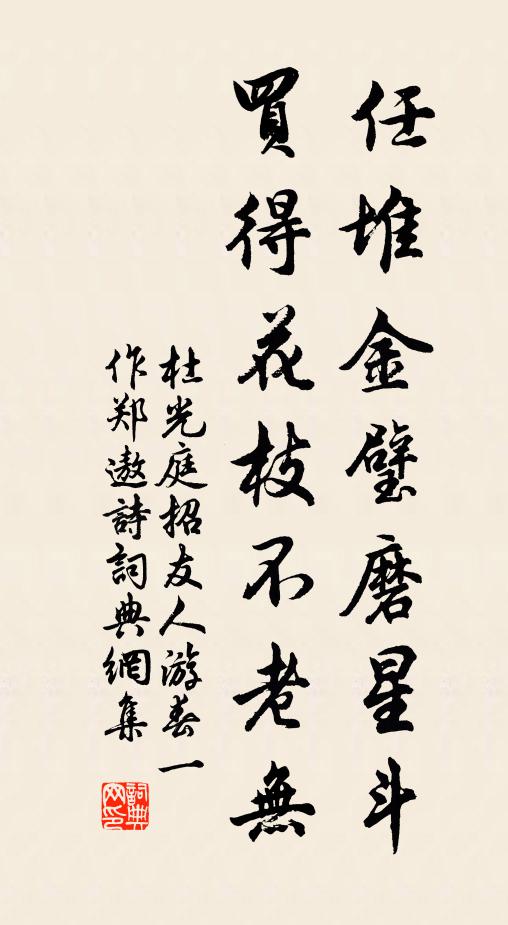 任堆金璧磨星斗
買得花枝不老無
杜光庭招友人游春一
作郑遨詩詞典網集
詞典网印